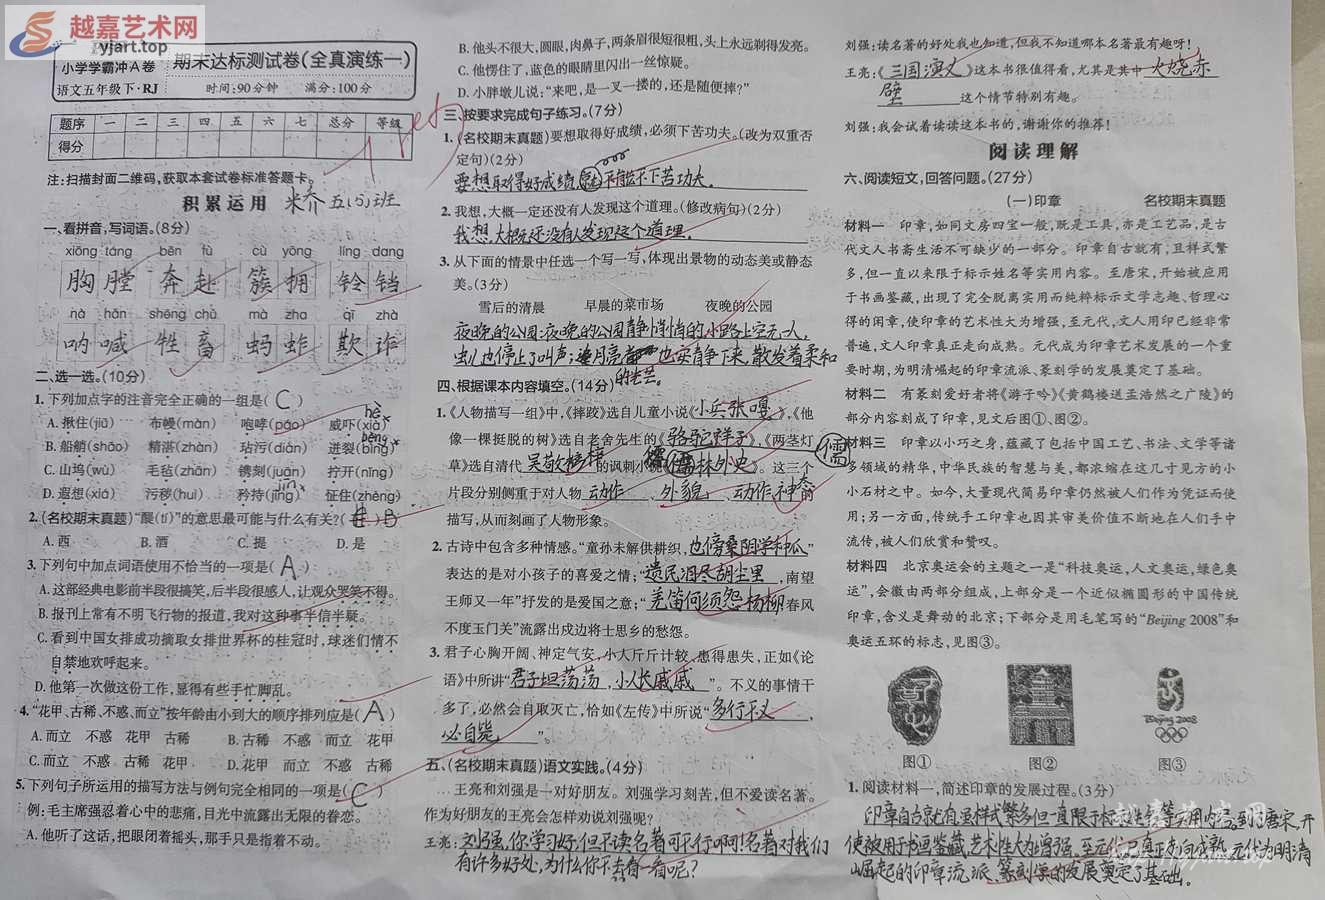 越嘉艺术网
yjart.top
小学学霸冲A卷
语文五年级下·RJ
期末达标测试卷(全真演练一)
时间:90分钟 满分:100分
题序 一 二 三 四 五 六 七 总分 等级
得分
注:扫描封面二维码,获取本套试卷标准答题卡。
积累运用
乔 五(5)班
一、看拼音,写词语。(8分)
xiōng táng bēn fù cù yōng líng dang
胸膛 奔赴 簇拥 铃铛
nà hǎn shēng chù mà zha qī zhà
呐喊 牲畜 蚂蚱 欺诈
二、选一选。(10分)
1.下列加点字的注音完全正确的一组是( C )
A.揪住(jiū) 布幔(màn) 咆哮(páo) 威吓(xià) hè
B.船艄(shāo) 精湛(zhàn) 玷污(diàn) 迸裂(bìng) bèng
C.山坞(wù) 毛毡(zhān) 镌刻(juān) 拧开(nǐng)
D.遐想(xiá) 污秽(huì) 矜持(jīng) 怔住(zhèng)
jīn
2.(名校期末真题)“醍(tí)”的意思最可能与什么有关?( B )
A.西 B.酒 C.提 D.是
3.下列句中加点词语使用不恰当的一项是( A )
A.这部经典电影前半段很搞笑,后半段很感人,让观众哭笑不得。
B.报刊上常有不明飞行物的报道,我对这种事半信半疑。
C.看到中国女排成功摘取女排世界杯的桂冠时,球迷们情不
自禁地欢呼起来。
D.他第一次做这份工作,显得有些手忙脚乱。
4.“花甲、古稀、不惑、而立”按年龄由小到大的顺序排列应是( A )
A.而立 不惑 花甲 古稀 B.古稀 不惑 而立 花甲
C.而立 不惑 古稀 花甲 D.花甲 而立 不惑 古稀
5.下列句子所运用的描写方法与例句完全相同的一项是( C )
例:毛主席强忍着心中的悲痛,目光中流露出无限的眷恋。
A.他听了这话,把眼闭着摇头,那手只是指着不动。
B.他头不很大,圆眼,肉鼻子,两条眉很短很粗,头上永远剃得发亮。
C.他愣住了,蓝色的眼睛里闪出一丝惊疑。
D.小胖墩儿说:“来吧,是一叉一搂的,还是随便摔?”
三、按要求完成句子练习。(7分)
1.(名校期末真题)要想取得好成绩,必须下苦功夫。(改为双重否
定句)(2分)
要想取得好成绩,就不能不下苦功夫。
2.我想,大概一定还没有人发现这个道理。(修改病句)(2分)
我想,大概还没有人发现这个道理。
3.从下面的情景中任选一个写一写,体现出景物的动态美或静态
美。(3分)
雪后的清晨 早晨的菜市场 夜晚的公园
夜晚的公园:夜晚的公园静悄悄的,小路上空无一人,
虫儿也停止了叫声;连月亮都也安静下来,散发着柔和
的光芒。
四、根据课本内容填空。(14分)
1.《人物描写一组》中,《摔跤》选自儿童小说《小兵张嘎》,《他
像一棵挺脱的树》选自老舍先生的《骆驼祥子》,《两茎灯
草》选自清代吴敬梓的讽刺小说《儒林外史》。这三个
儒
片段分别侧重于对人物动作、外貌、动作神态的
描写,从而刻画了人物形象。
2.古诗中包含多种情感。“童孙未解供耕织,也傍桑阴学种瓜”
表达的是对小孩子的喜爱之情;“遗民泪尽胡尘里,南望
王师又一年”抒发的是爱国之意;“羌笛何须怨杨柳,春风
不度玉门关”流露出戍边将士思乡的愁怨。
3.君子心胸开阔、神定气安,小人斤斤计较、患得患失,正如《论
语》中所讲“君子坦荡荡,小人长戚戚”。不义的事情干
多了,必然会自取灭亡,恰如《左传》中所说“多行不义,
必自毙”。
五、(名校期末真题)语文实践。(4分)
王亮和刘强是一对好朋友。刘强学习刻苦,但不爱读名著。
作为好朋友的王亮会怎样劝说刘强呢?
王亮:刘强,你学习好,但不读名著可不行啊!名著对我们
有许多好处,为什么你不去看一看呢?
刘强:读名著的好处我也知道,但我不知道哪本名著最有趣呀!
王亮:《三国演义》这本书很值得看,尤其是其中火烧赤
壁这个情节特别有趣。
刘强:我会试着读读这本书的,谢谢你的推荐!
阅读理解
六、阅读短文,回答问题。(27分)
(一)印章 名校期末真题
材料一 印章,如同文房四宝一般,既是工具,亦是工艺品,是古
代文人书斋生活不可缺少的一部分。印章自古就有,且样式繁
多,但一直以来限于标示姓名等实用内容。至唐宋,开始被应用
于书画鉴藏,出现了完全脱离实用而纯粹标示文学志趣、哲理心
得的闲章,使印章的艺术性大为增强,至元代,文人用印已经非常
普遍,文人印章真正走向成熟。元代成为印章艺术发展的一个重
要时期,为明清崛起的印章流派、篆刻学的发展奠定了基础。
材料二 有篆刻爱好者将《游子吟》《黄鹤楼送孟浩然之广陵》的
部分内容刻成了印章,见文后图①、图②。
材料三 印章以小巧之身,蕴藏了包括中国工艺、书法、文学等诸
多领域的精华,中华民族的智慧与美,都浓缩在这几寸见方的小
小石材之中。如今,大量现代简易印章仍然被人们作为凭证而使
用;另一方面,传统手工印章也因其审美价值不断地在人们手中
流传,被人们欣赏和赞叹。
材料四 北京奥运会的主题之一是“科技奥运,人文奥运,绿色奥
运”,会徽由两部分组成,上部分是一个近似椭圆形的中国传统
印章,含义是舞动的北京;下部分是用毛笔写的“Beijing 2008”和
奥运五环的标志,见图③。
Beijing 2008
图① 图② 图③
1.阅读材料一,简述印章的发展过程。(3分)
印章自古就有,虽样式繁多但一直限于标示姓名等实用内容。到了唐宋,开
始被用于书画鉴藏,艺术性大为增强,至元代已真正走向成熟,元代为明清
崛起的印章流派、篆刻学的发展奠定了基础。
越嘉艺术网